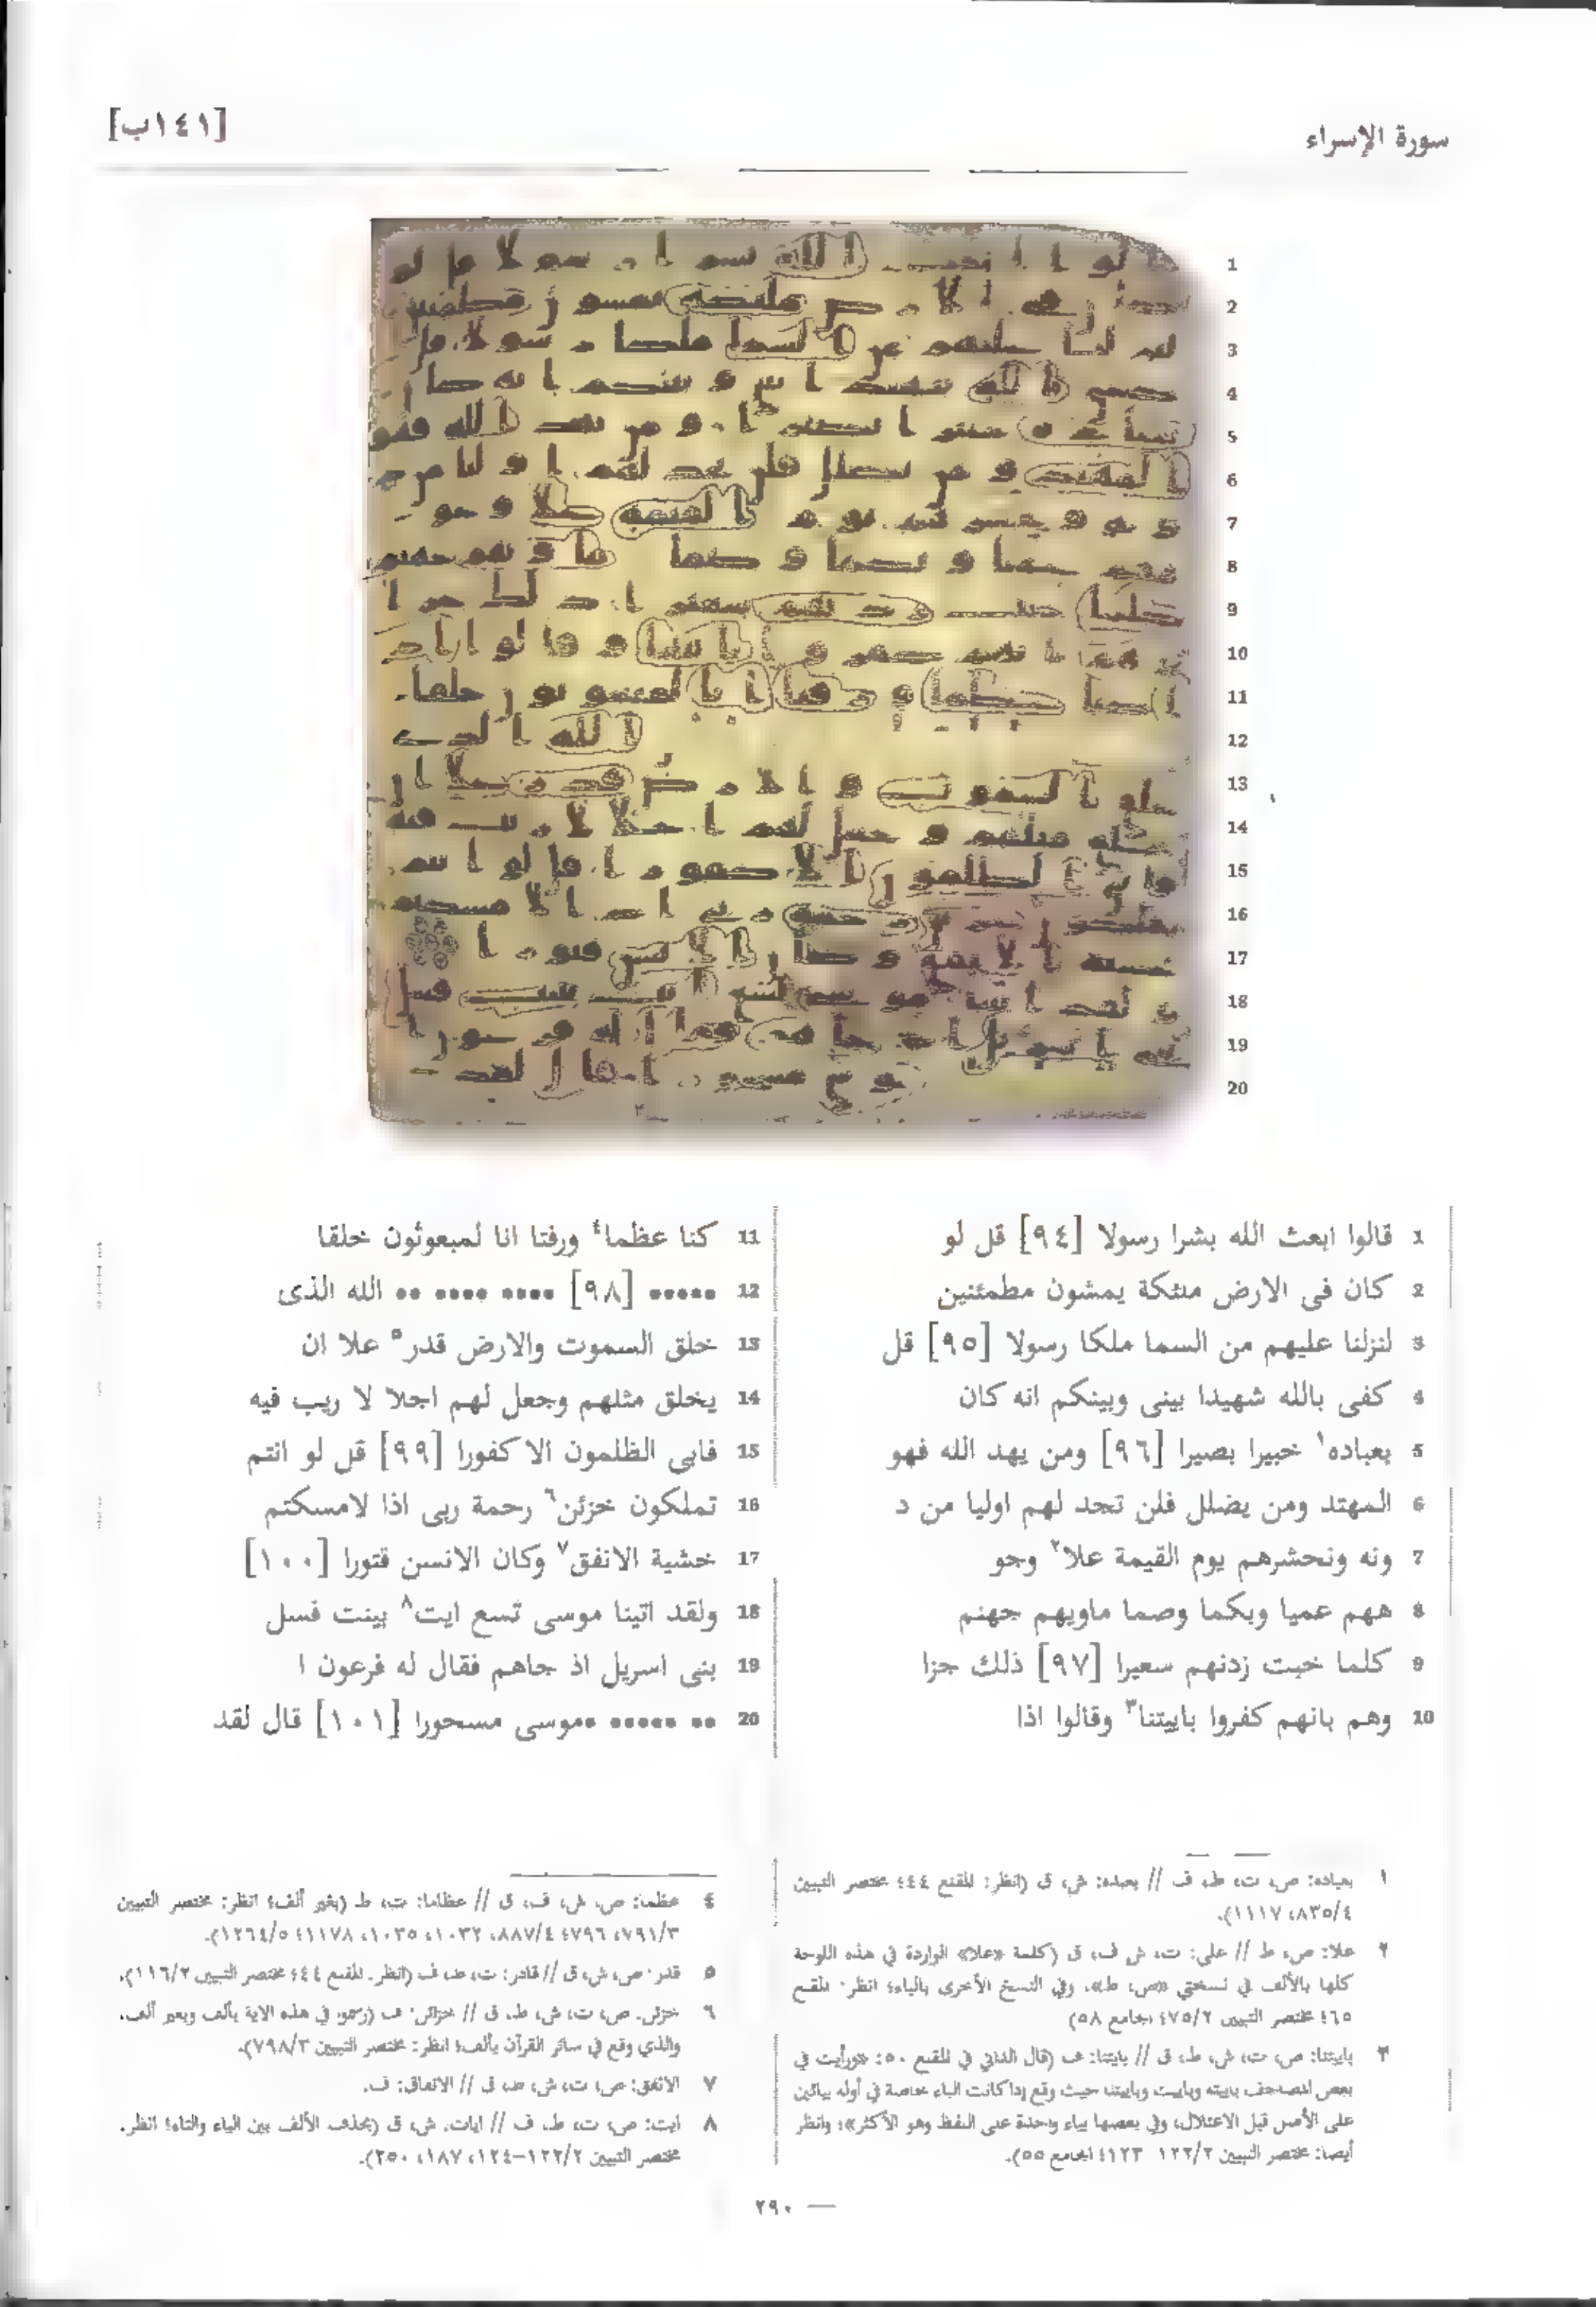 سورة الإسراء
[١٤١ب]
1 قالوا ابعث الله بشرا رسولا [٩٤] قل لو
2 كان فى الارض ملئكة يمشون مطمئنين
3 لنزلنا عليهم من السما ملكا رسولا [٩٥] قل
4 كفى بالله شهيدا بينى وبينكم انه كان
5 بعباده١ خبيرا بصيرا [٩٦] ومن يهد الله فهو
6 المهتد ومن يضلل فلن تجد لهم اوليا من د
7 ونه ونحشرهم يوم القيمة علا٢ وجو
8 ههم عميا وبكما وصما ماويهم جهنم
9 كلما خبت زدنهم سعيرا [٩٧] ذلك جزا
10 وهم بانهم كفروا باييتنا٣ وقالوا اذا
11 كنا عظما٤ ورفتا انا لمبعوثون خلقا
12 ••••• [٩٨] •••• •••• •• الله الذى
13 خلق السموت والارض قدر٥ علا ان
14 يخلق مثلهم وجعل لهم اجلا لا ريب فيه
15 فابى الظلمون الا كفورا [٩٩] قل لو انتم
16 تملكون خزئن٦ رحمة ربى اذا لامسكتم
17 خشية الانفق٧ وكان الانسن قتورا [١٠٠]
18 ولقد اتينا موسى تسع ايت٨ بينت فسل
19 بنى اسريل اذ جاهم فقال له فرعون ا
20 •• ••••• •موسى مسحورا [١٠١] قال لقد
١ بعباده: ص، ت، ط، ف // بعبده: ش، ق (انظر: المقنع ٤٤؛ مختصر التبيين
٨٣٥/٤، ١١١٧).
٢ علا: ص، ط // على: ت، ش، ف، ق (كلمة «علا» الواردة في هذه اللوحة
كلها بالألف في نسختي «ص، ط»، وفي النسخ الأخرى بالياء؛ انظر: المقنع
٦٥؛ مختصر التبيين ٧٥/٢؛ الجامع ٥٨)
٣ باييتنا: ص، ت، ش، ط، ق // بايتنا: ف (قال الداني في المقنع ٥٠: «ورأيت في
بعض المصاحف باييته وباييت وباييتنا حيث وقع إذا كانت الباء خاصة في أوله بيائين
على الأصل قبل الاعتلال، وفي بعضها بياء واحدة على اللفظ وهو الأكثر»؛ وانظر
أيضا: مختصر التبيين ١٢٢/٢-١٢٣؛ الجامع ٥٥).
٤ عظما: ص، ش، ف، ق // عظاما: ت، ط (بغير ألف؛ انظر: مختصر التبيين
٧٩١/٣، ٧٩٦؛ ٨٨٧/٤، ١٠٣٢، ١٠٣٥، ١١٧٨؛ ١٢٦٤/٥).
٥ قدر: ص، ش، ق // قادر: ت، ط، ف (انظر: المقنع ٤٤؛ مختصر التبيين ١١٦/٢).
٦ خزئن: ص، ت، ش، ط، ق // خزائن: ف (رسموا في هذه الاية بألف وبغير ألف.
والذي وقع في سائر القرآن بألف؛ انظر: مختصر التبيين ٧٩٨/٣).
٧ الانفق: ص، ت، ش، ط، ق // الانفاق: ف.
٨ ايت: ص، ت، ط، ف // ايات: ش، ق (بحذف الألف بين الياء والتاء؛ انظر:
مختصر التبيين ١٢٢/٢-١٢٤، ١٨٧، ٢٥٠).
— ٢٩٠